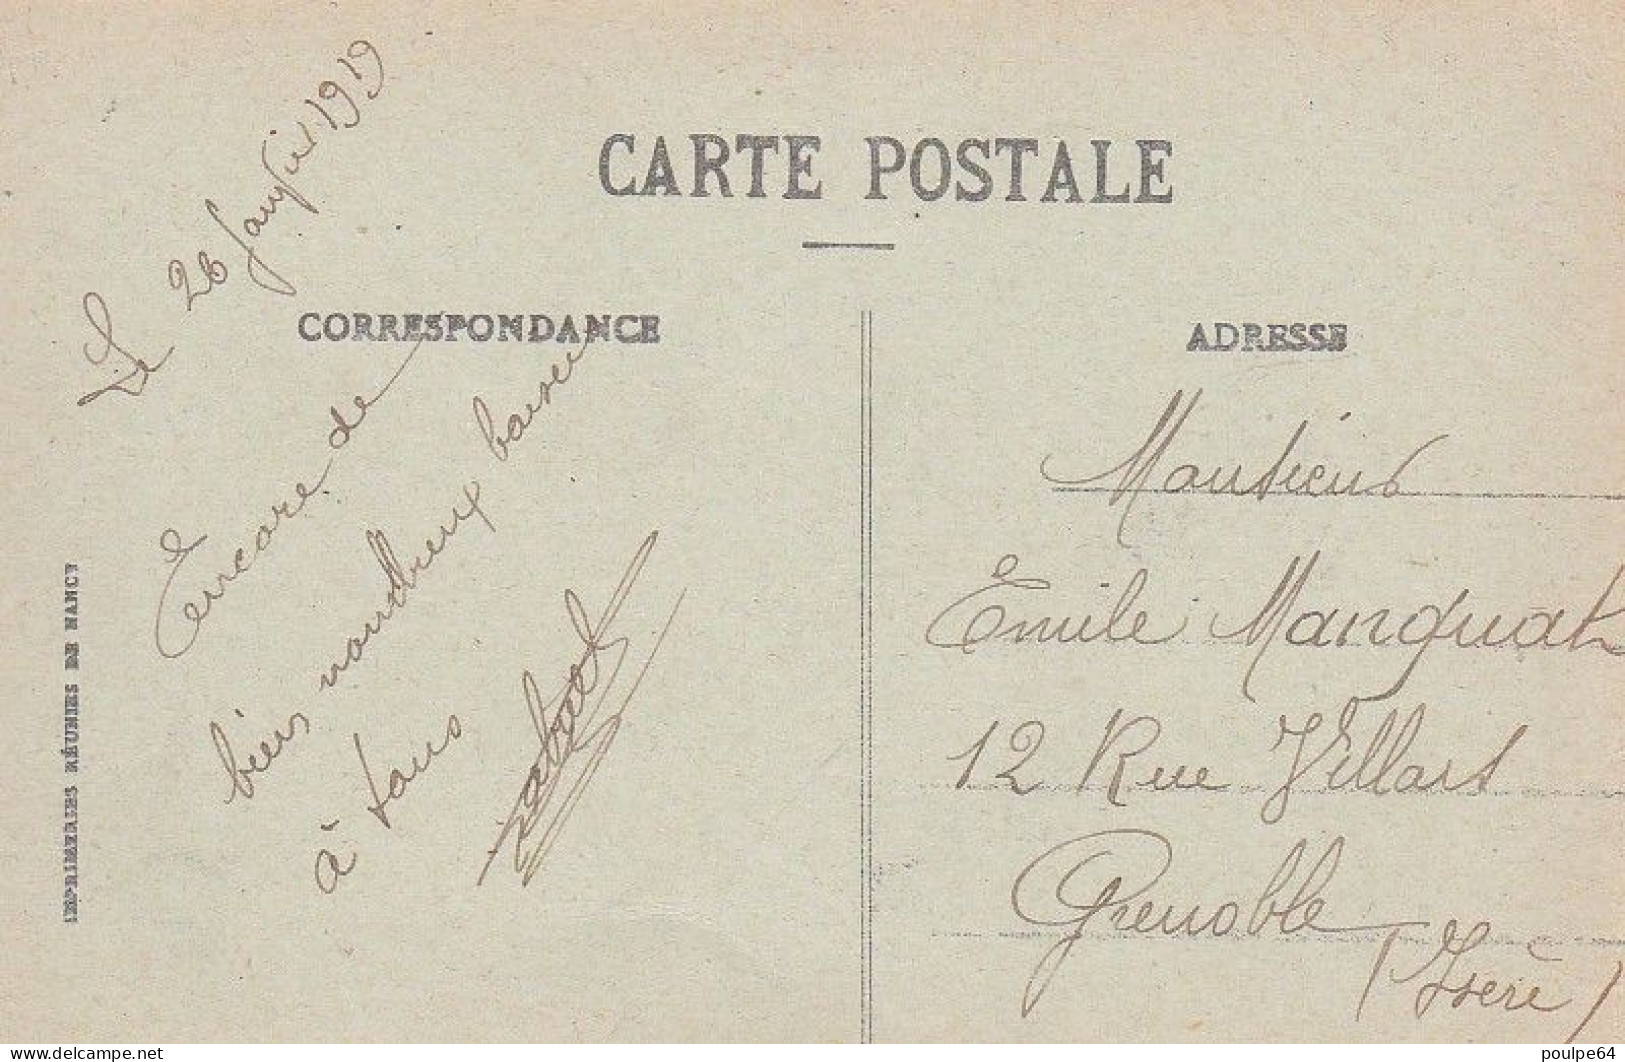 CARTE POSTALE
CORRESPONDANCE
ADRESSE
Le 26 Janvier 1919
Encore de
biens nombreux baisers
à tous
Monsieur
Emile Manquat
12 Rue Villars
Grenoble
(Isère)
IMPRIMERIES RÉUNIES DE NANCY
www.delcampe.net
poulpe64